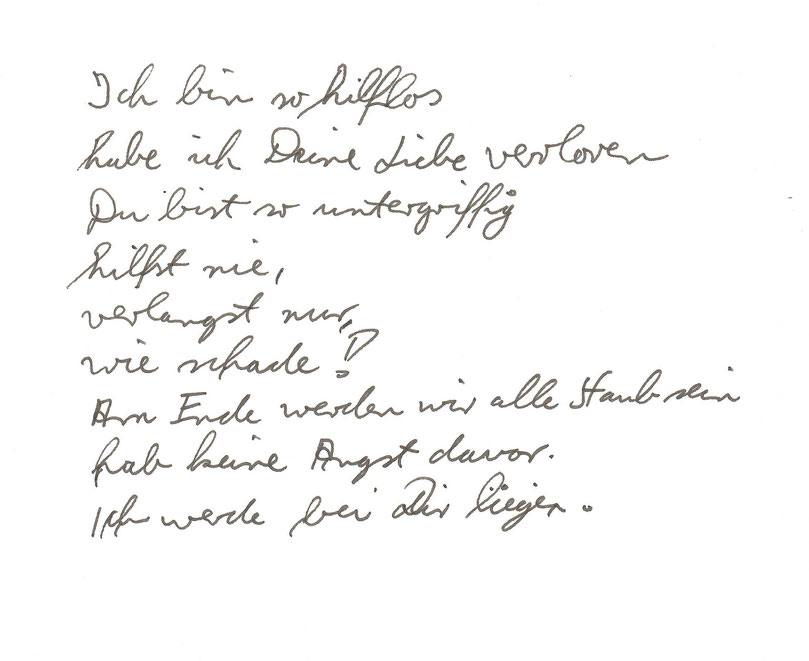 Ich bin so hilflos
habe ich Deine Liebe verloren
Du bist so untergriffig
hilfst nie,
verlangst nur,
wie schade!
Am Ende werden wir alle Staub sein
hab keine Angst davor.
Ich werde bei Dir liegen.